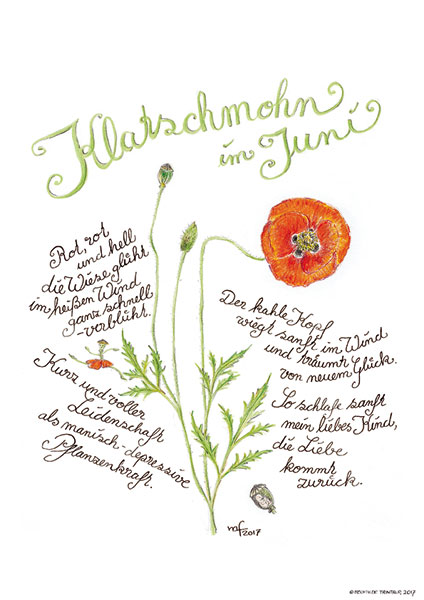 Klatschmohn
im Juni
Rot, rot
und hell
die Wiese glüht
im heißen Wind
ganz schnell
-verblüht.
Kurz und voller
Leidenschaft
als manisch-depressive
Pflanzenkraft.
Der kahle Kopf
wiegt sanft im Wind
und träumt
von neuem Glück.
So schlafe sanft
mein liebes Kind,
die Liebe
kommt
zurück.
naf 2017
2017